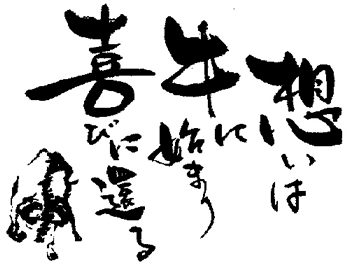 想いは
牛に始まり
喜びに還る